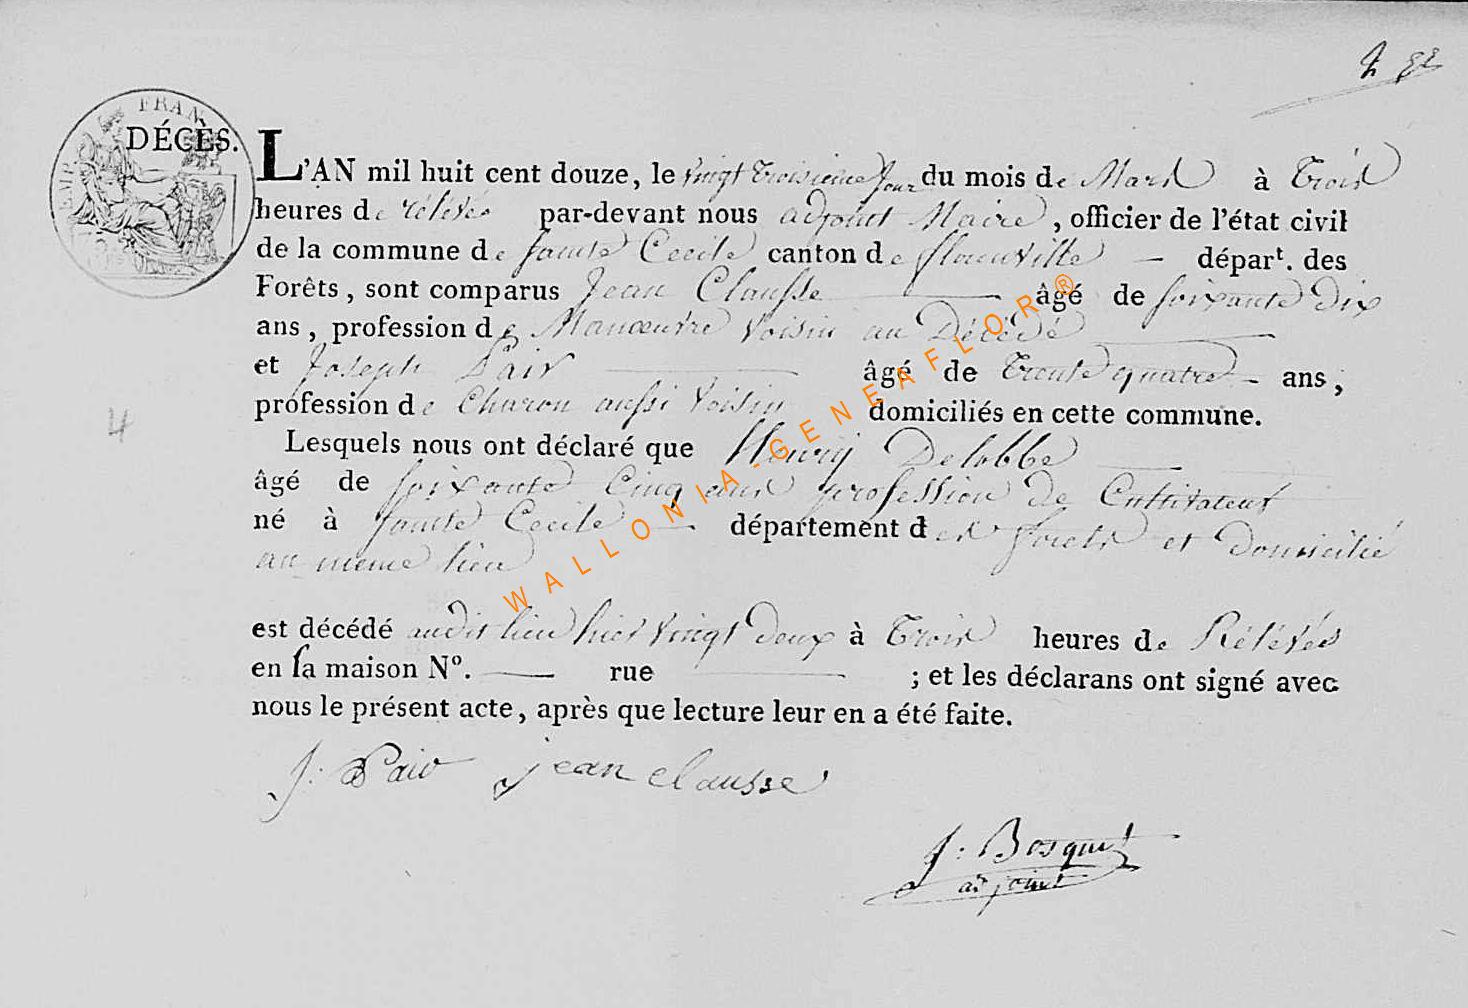 EMP. FRAN
DÉCÈS.
L'AN mil huit cent douze, le vingt troisieme jour du mois de Mars à Trois
heures de rélévés par-devant nous adjoint Maire, officier de l'état civil
de la commune de Sainte Cecile canton de florenville — départ. des
Forêts, sont comparus Jean Clausse âgé de soixante dix
ans, profession de Manœuvre voisin au Décédé
et Joseph Pair âgé de Trente quatre - ans,
profession de Charon aussi voisin domiciliés en cette commune.
Lesquels nous ont déclaré que Henrij Delobbe
âgé de soixante cinq ans profession de Cultivateur
né à Sainte Cecile — département des forets et domicilié
au meme lieu
est décédé audit lieu hier vingt deux à Trois heures de Rélévés
en sa maison N°. — rue ; et les déclarans ont signé avec
nous le présent acte, après que lecture leur en a été faite.
J: jean clausse
J: Bosquet
adjoint
4
WALLONIA-GENEAFLOR®